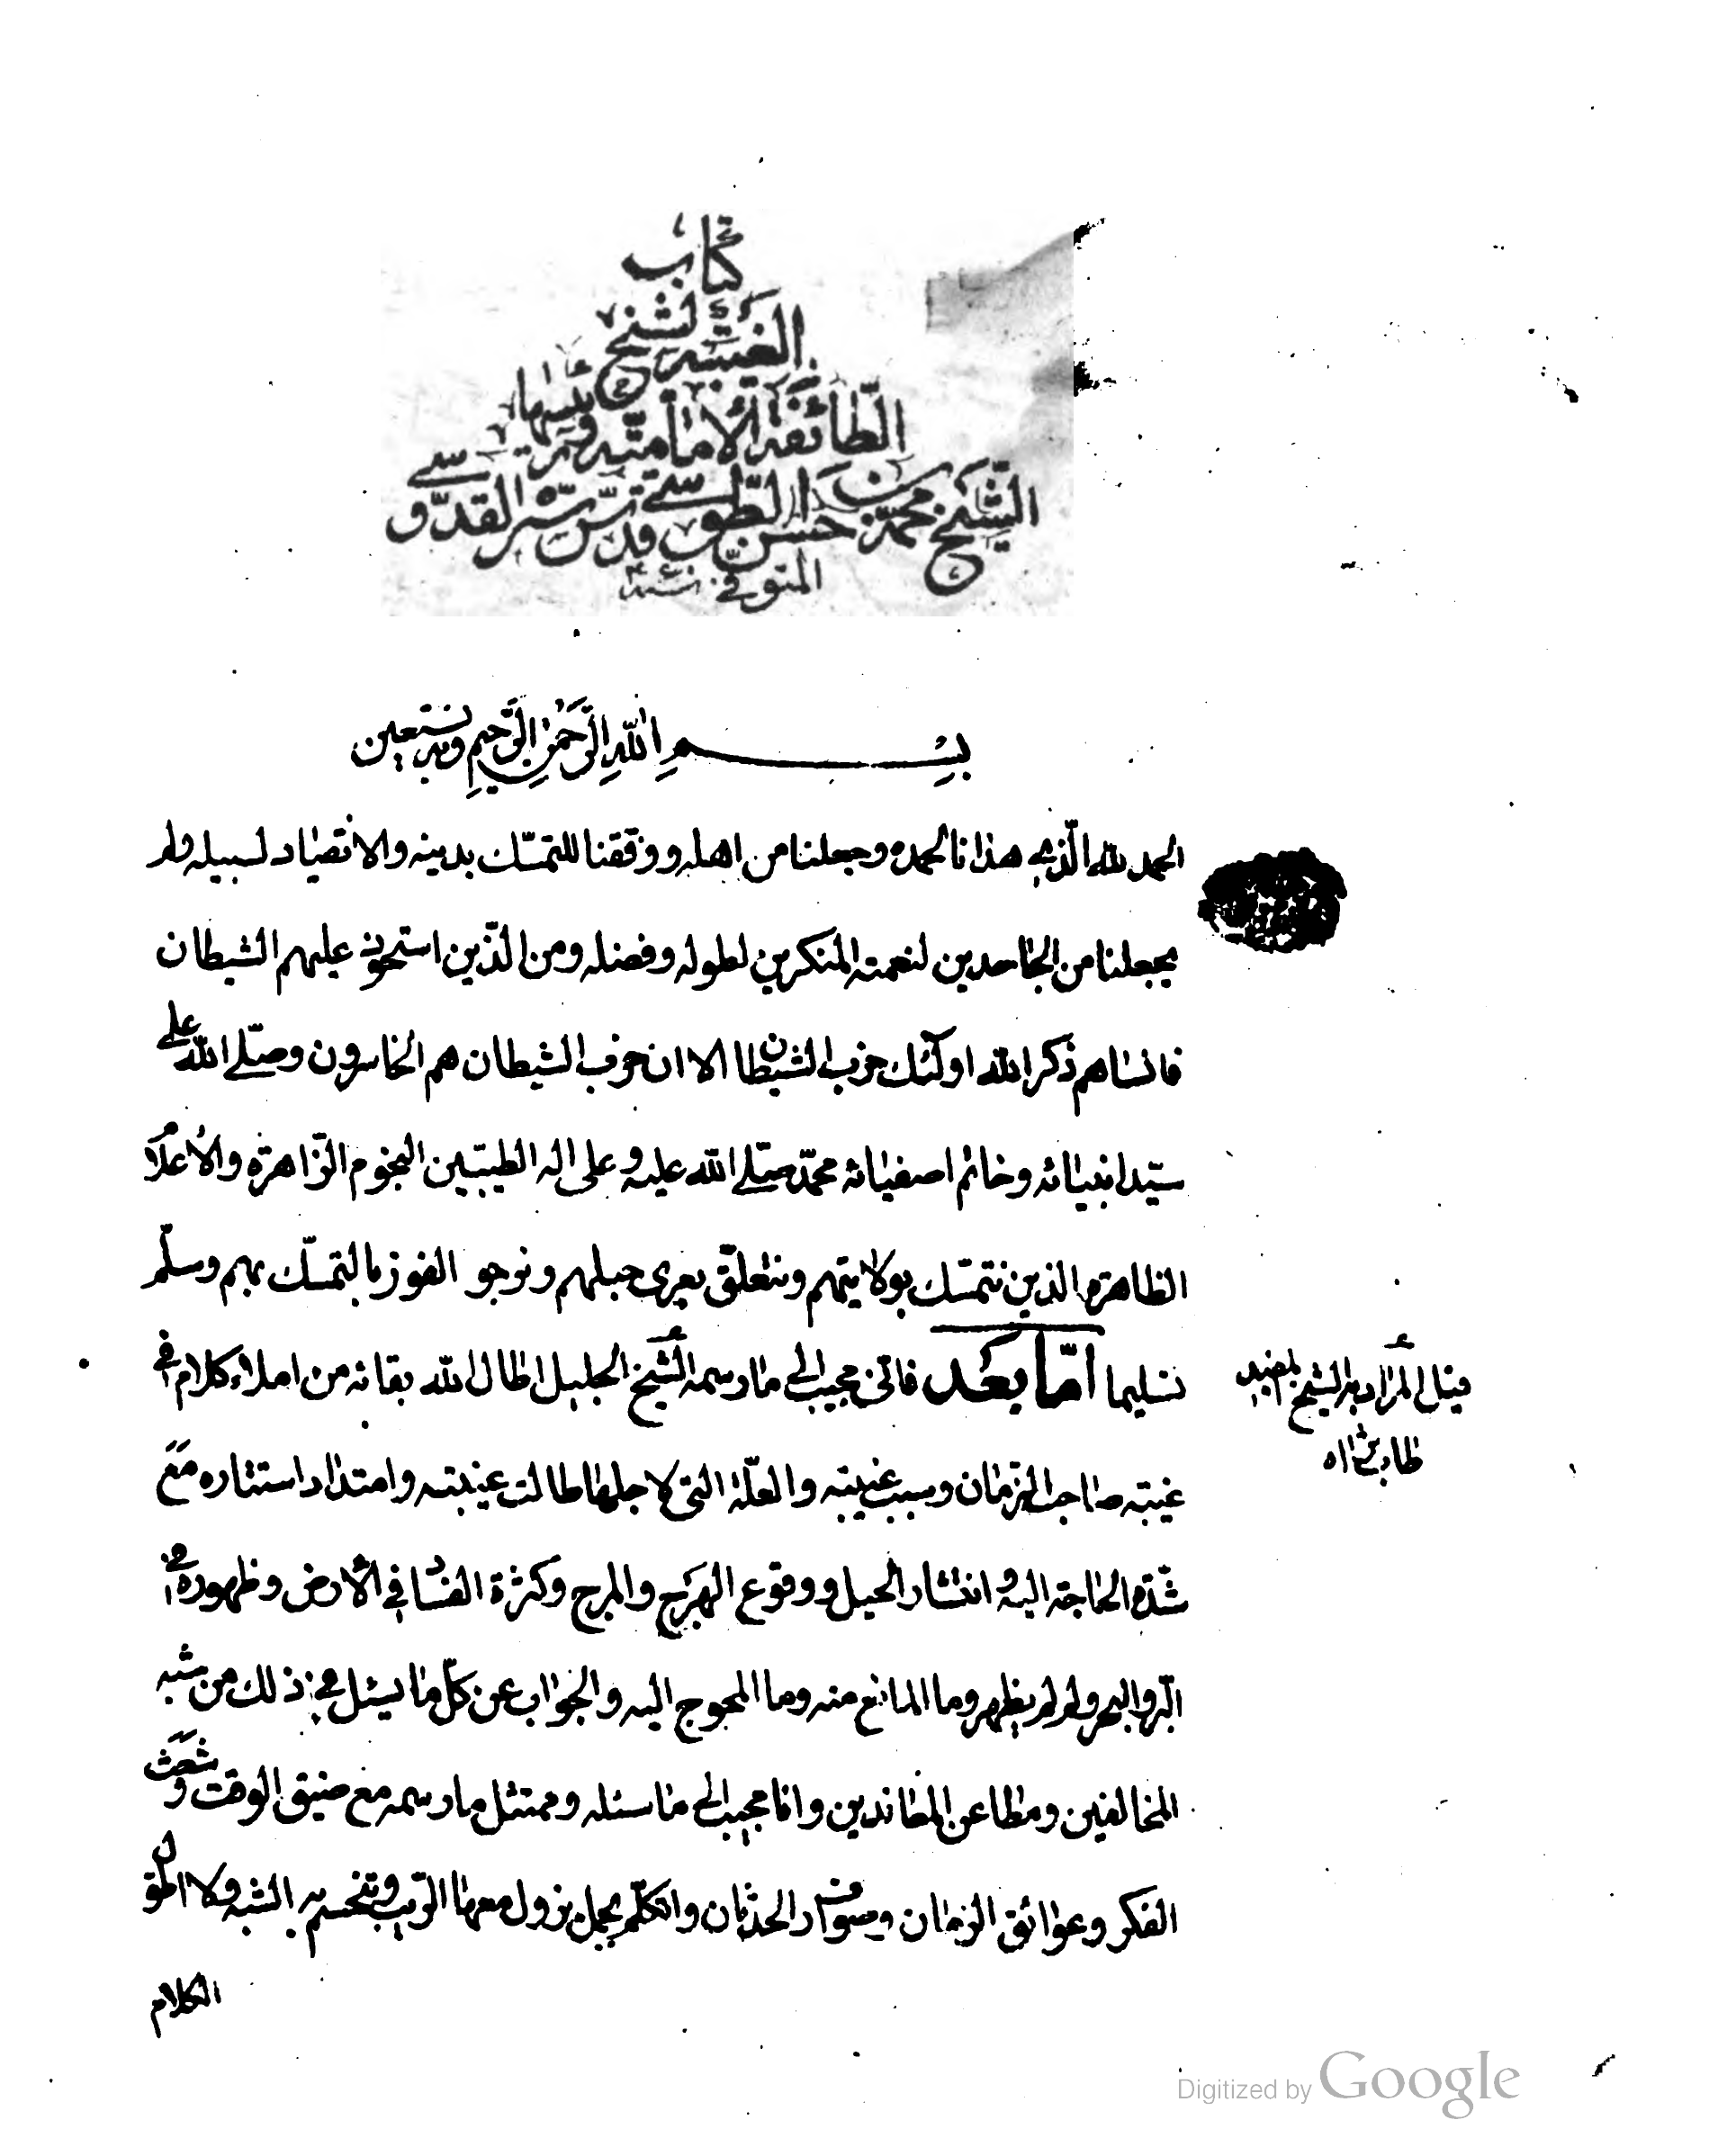 كتاب
الغيبة لشيخ
الطائفة الامامية ورئيسها
الشيخ محمد بن حسن الطوسي قدس سره القدوسي
المتوفى سنة ٤٦٠
بسم الله الرحمن الرحيم وبه نستعين
الحمد لله الذي هدانا لحمده وجعلنا من اهله ووفقنا للتمسك بدينه والانقياد لسبيله ولم
يجعلنا من الجاحدين لنعمته المنكرين لطوله وفضله ومن الذين استحوذ عليهم الشيطان
فانساهم ذكر الله اولئك حزب الشيطان الا ان حزب الشيطان هم الخاسرون وصلى الله على
سيد انبيائه وخاتم اصفيائه محمد صلى الله عليه وعلى اله الطيبين النجوم الزاهرة والاعلام
الظاهرة الذين نتمسك بولايتهم ونتعلق بعرى حبلهم ونرجو الفوز بالتمسك بهم وسلم
تسليما اما بعد فاني مجيب الى ما رسمه الشيخ الجليل اطال الله بقائه من املاء كلام في
قيل المراد به الشيخ المفيد
طاب ثراه
غيبة صاحب الزمان وسبب غيبته والعلة التي لاجلها طالت غيبته وامتداد استتاره مع
شدة الحاجة اليه وانتشار الحيل ووقوع الهرج والمرج وكثرة الفساد في الارض وظهوره في
البر والبحر ولم لم يظهر وما المانع منه وما المحوج اليه والجواب عن كل ما يسئل في ذلك من شبه
المخالفين ومطاعن المعاندين وانا مجيب الى ما سئله وممتثل ما رسمه مع ضيق الوقت وشعث
الفكر وعوائق الزمان وصوارف الحدثان واتكلم بجمل يزول معها الريب وتنحسم به الشبه ولا اطول
الكلام
Digitized by Google